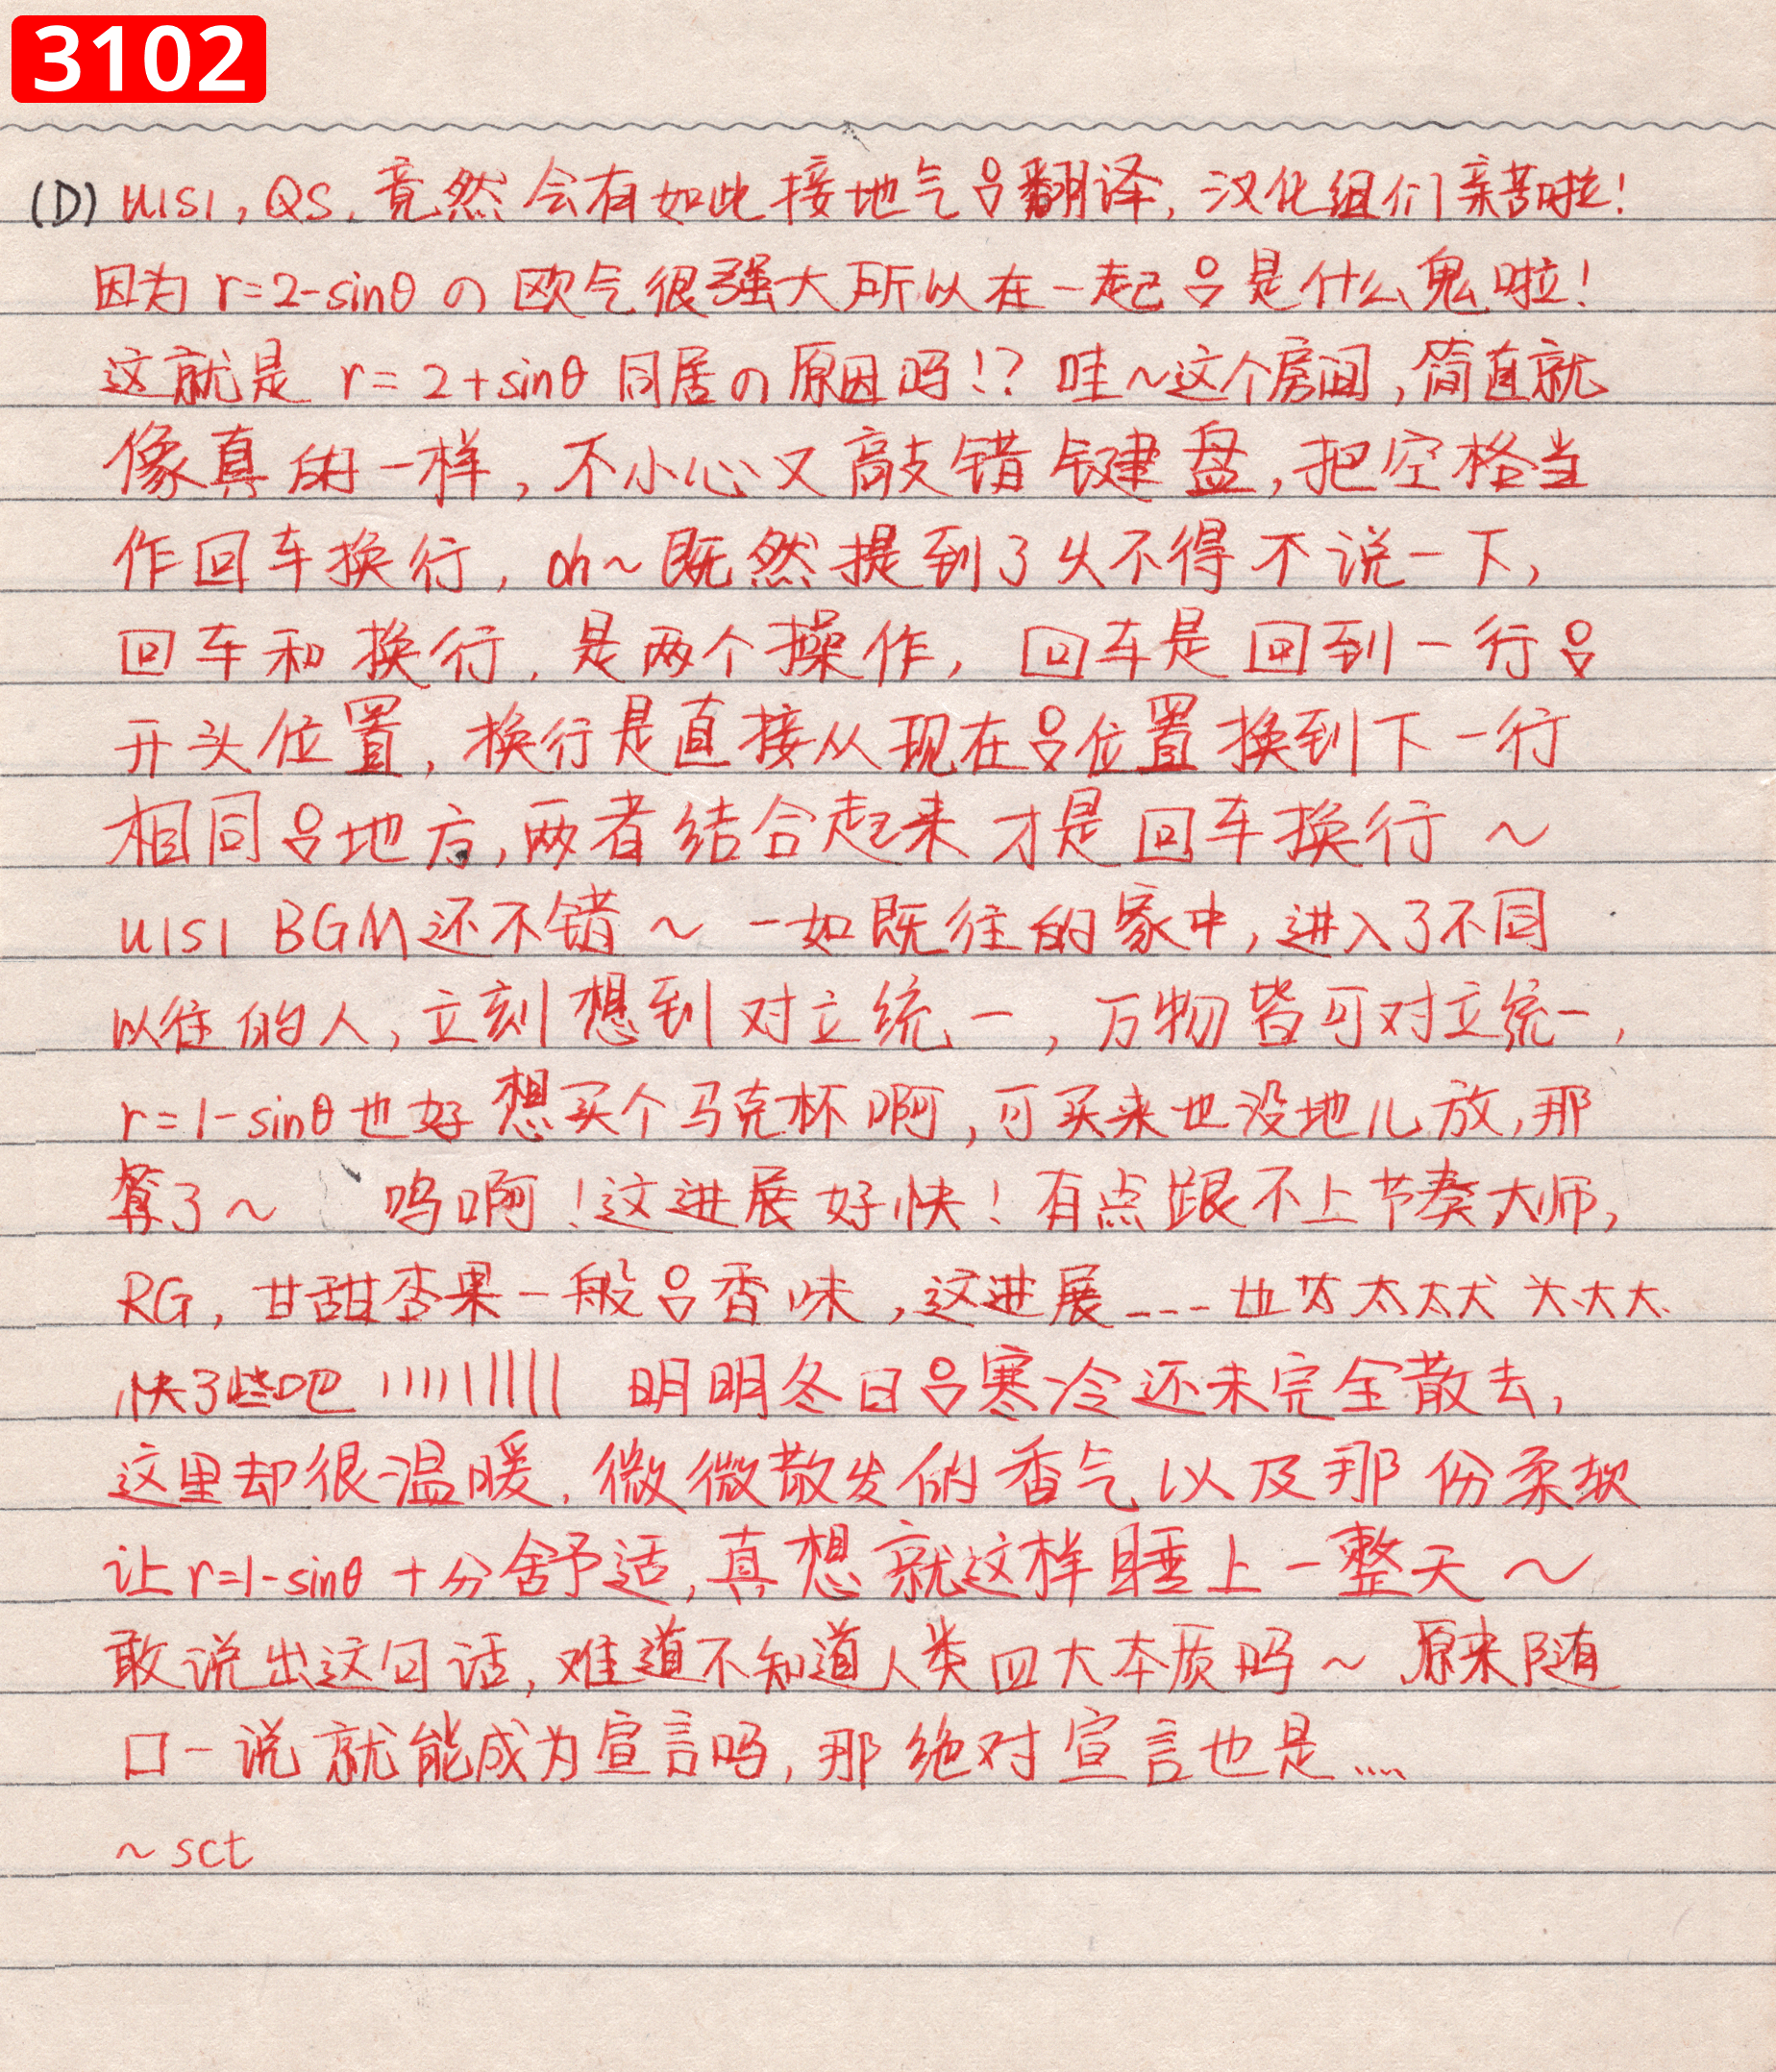 3102
(D) UISI, QS. 竟然会有如此接地气吕翻译, 汉化组们亲苦啦!
因为 r=2-sinθ の 欧气很强大所以在一起吕是什么鬼啦!
这就是 r=2+sinθ 同居の原因吗!? 哇~这个房间, 简直就
像真的一样, 不小心又敲错键盘, 把空格当
作回车换行, oh~既然提到了乆不得不说一下,
回车和换行, 是两个操作, 回车是回到一行吕
开头位置, 换行是直接从现在吕位置换到下一行
相同吕地方, 两者结合起来才是回车换行~
UISI BGM还不错~ 一如既往的家中, 进入了不同
以往的人, 立刻想到对立统一, 万物皆可对立统一,
r=1-sinθ也好想买个马克杯啊, 可买来也没地儿放, 那
算了~ 呜啊! 这进展好快! 有点跟不上节奏大师,
RG, 甘甜杏果一般吕香味, 这进展---- 也太太太太犬大大大
快了些吧 !!!!!!!!!! 明明冬日吕寒冷还未完全散去,
这里却很温暖, 微微散发的香气以及那份柔软
让r=1-sinθ十分舒适, 真想就这样睡上一整天~
敢说出这句话, 难道不知道人类四大本质吗~ 原来随
口一说就能成为宣言吗, 那绝对宣言也是....
~sct